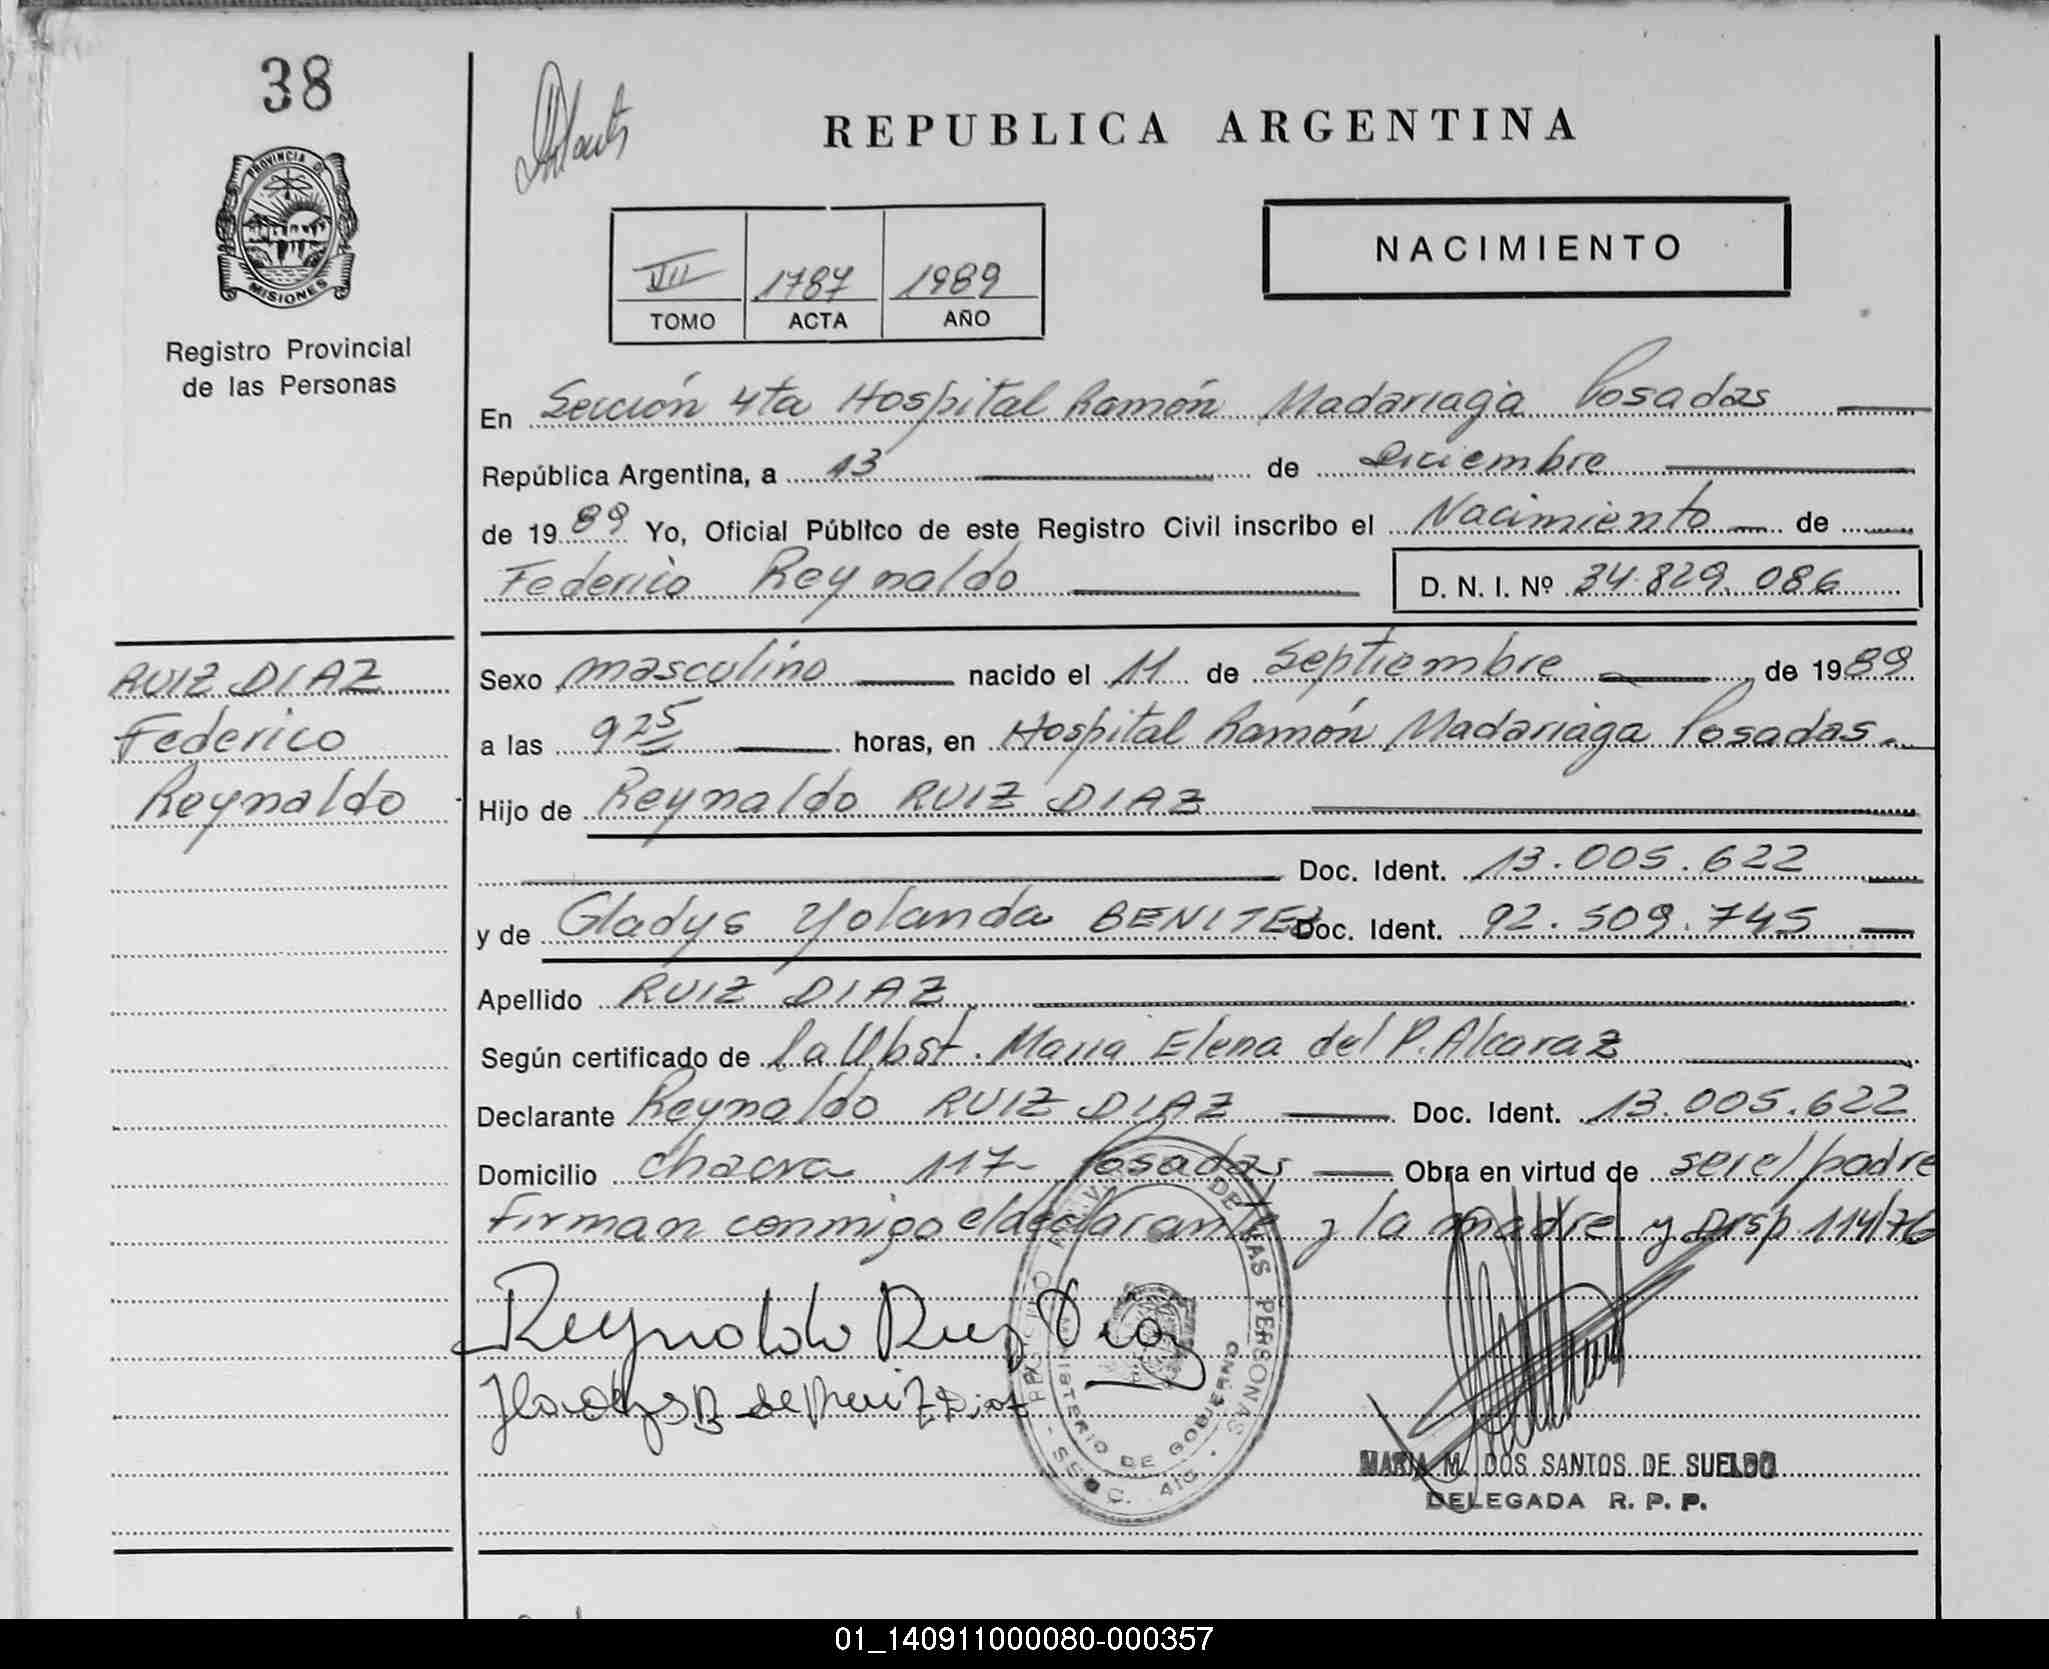 38
PROVINCIA DE
MISIONES
Registro Provincial
de las Personas
REPUBLICA ARGENTINA
NACIMIENTO
VII 1787 1989
TOMO ACTA AÑO
En Sección 4ta Hospital Ramón Madariaga Posadas
República Argentina, a 13 de Diciembre
de 1989 Yo, Oficial Público de este Registro Civil inscribo el Nacimiento de
Federico Reynaldo D. N. I. Nº 34.829.086
RUIZ DIAZ
Federico
Reynaldo
Sexo masculino nacido el 11 de Septiembre de 1989
a las 9 25 horas, en Hospital Ramón Madariaga Posadas.
Hijo de Reynaldo RUIZ DIAZ
Doc. Ident. 13.005.622
y de Gladys Yolanda BENITEZ Doc. Ident. 92.509.745
Apellido RUIZ DIAZ
Según certificado de la Obst. Maria Elena del P. Alcaraz
Declarante Reynaldo RUIZ DIAZ Doc. Ident. 13.005.622
Domicilio chacra 117- Posadas Obra en virtud de ser el padre
Firman conmigo el declarante y la madre y Disp 114/76
Reynaldo Ruiz Diaz
Gladys B de Ruiz Diaz
DE LAS PERSONAS
MINISTERIO DE GOBIERNO
SECC. 4ta.
MARIA M. DOS SANTOS DE SUELDO
DELEGADA R. P. P.
01_140911000080-000357